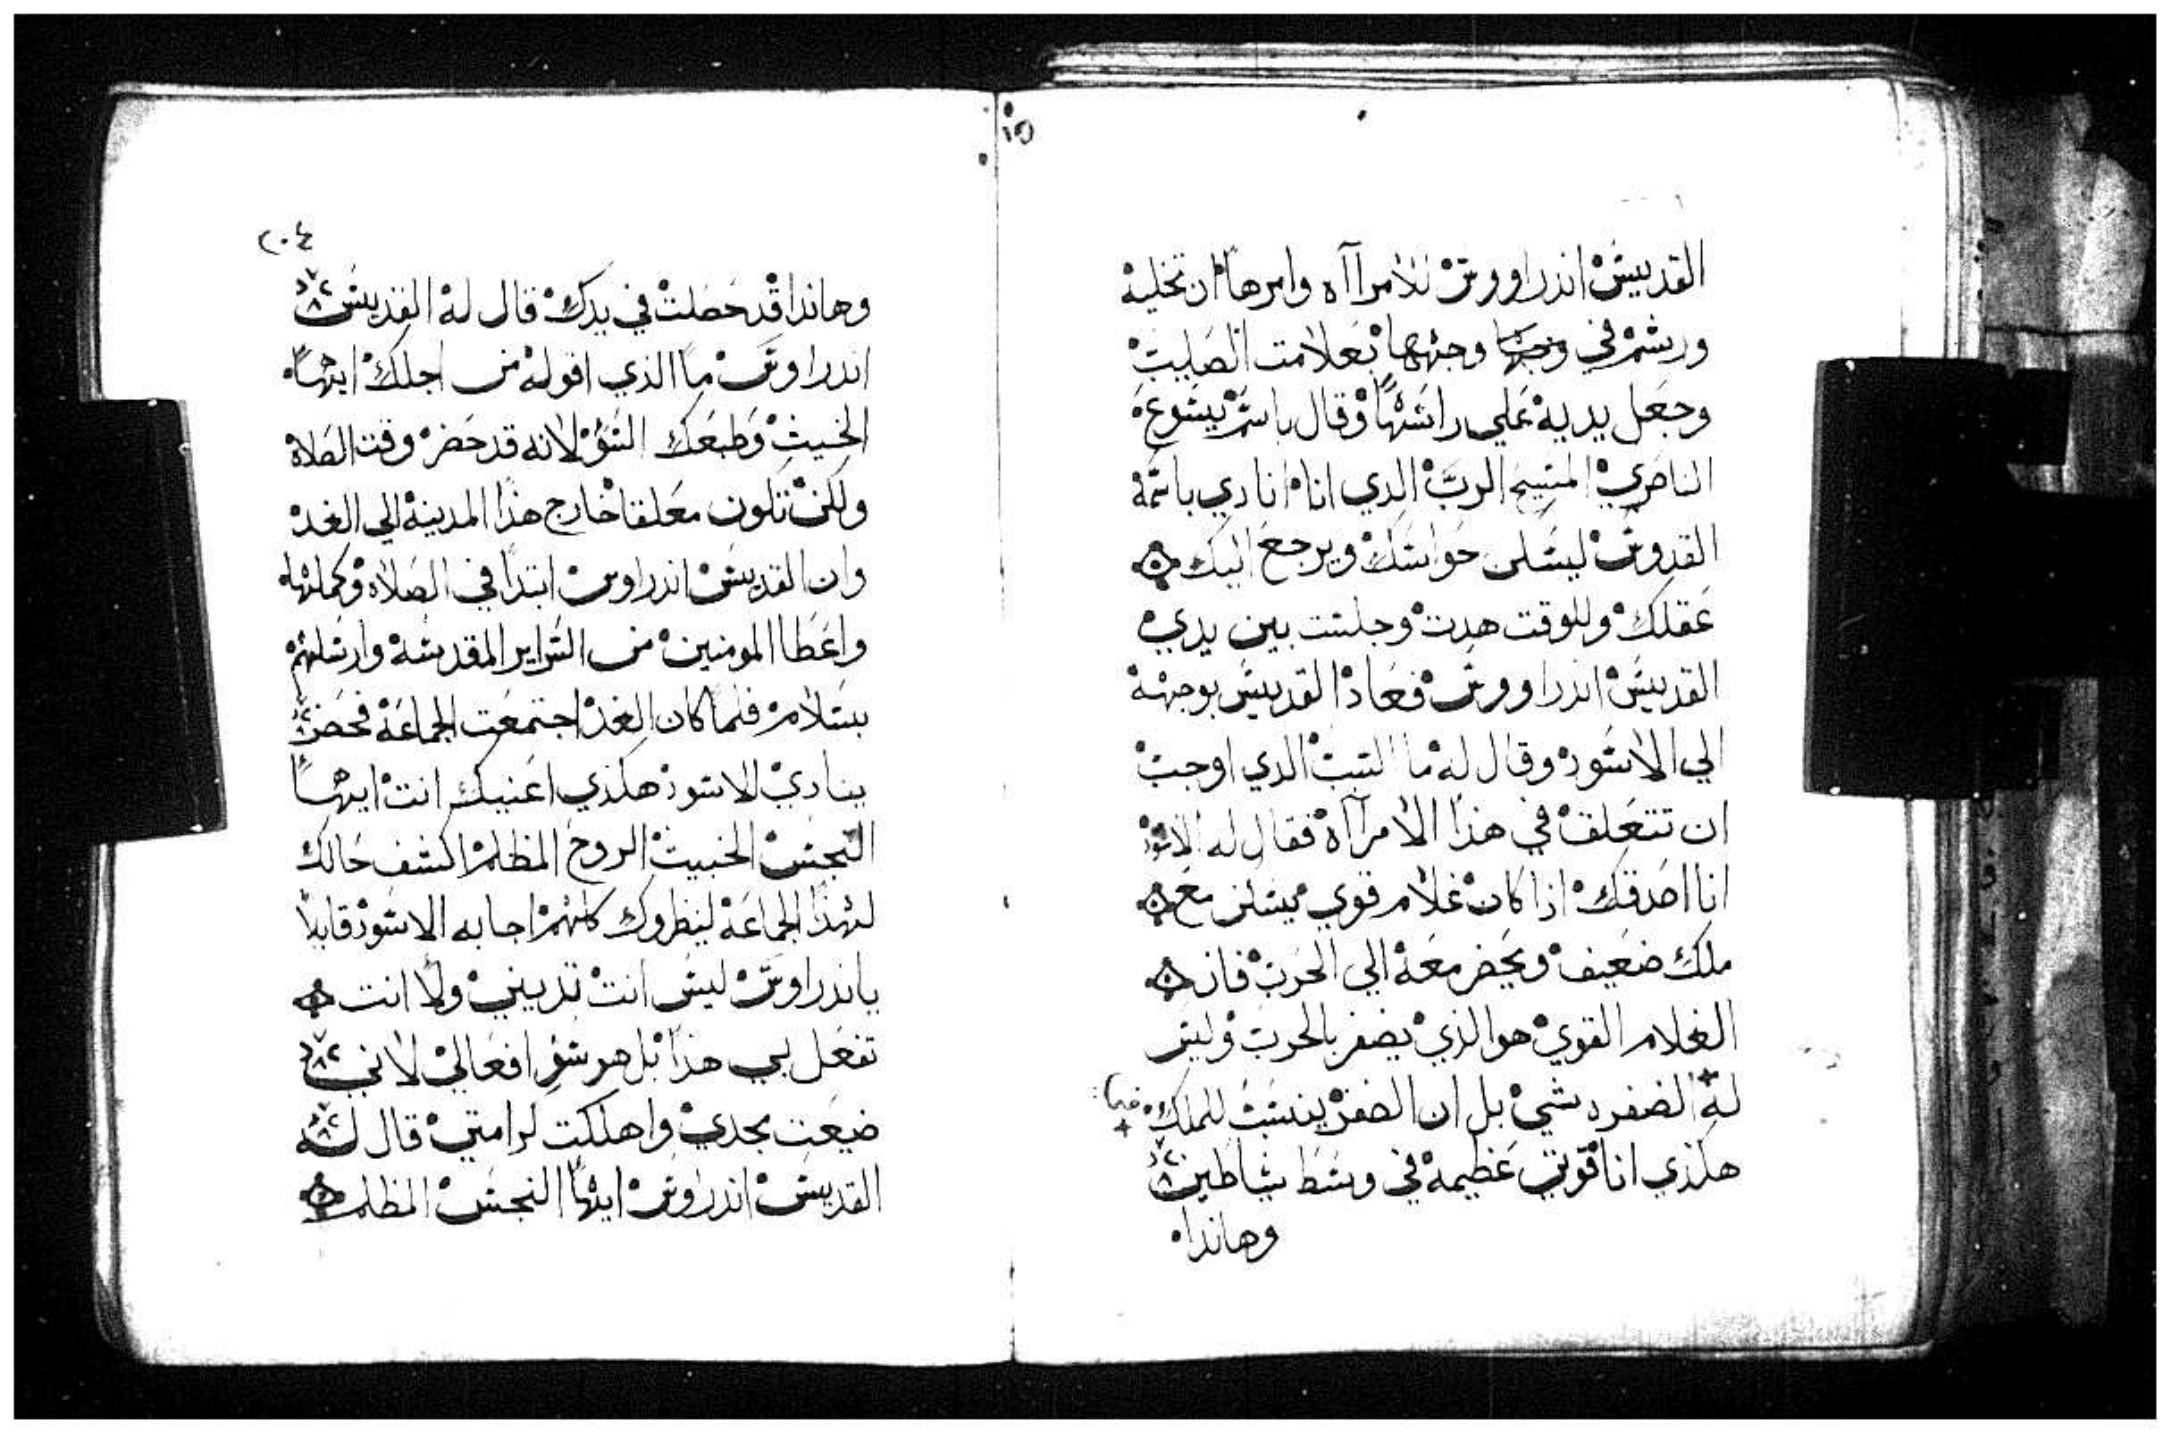 القديس اندراووس للامرااه وامرها ان تخليه
ورشم في وجهها وجهها بعلامت الصليب
وجعل يديه علي راسها وقال باسم يسوع
الناصري المسيح الرب الدي انا انادي باسمه
القدوس ليسكن حواسك ويرجع اليك
عقلك وللوقت هدت وجلست بين يدي
القديس اندراووس فعاد القديس بوجهه
الي الاسود وقال له ما السبب الدي اوجب
ان تتعلق في هذا الامرااه فقال له الاسود
انا اصدقك اذا كان غلام قوي ممسكن مع
ملك ضعيف ويحضر معه الي الحرب فان
الغلام القوي هو الذي يضفر بالحرب وليس
له الضفر بشي بل ان الضفر ينسب للملك
هكذي انا قوتي عظيمه في وسط شياطين
وهانذا
٢٠٤
وهانذا قد حصلت في يدك قال له القديس
اندراوس ما الذي اقوله من اجلك ايها
الخبيث وطبعك السؤ لانه قد حضر وقت الصلاه
ولكن تكون معلقا خارج هذا المدينه الي الغد
وان القديس اندراوس ابتدا في الصلاه وكملها
واعطا المومنين من السراير المقدسه وارسلهم
بسلام فلما كان الغد اجتمعت الجماعه فحضر
ينادي الاسود هكذي اعنيك انت ايها
النجس الخبيث الروح المظلم اكشف حالك
لهذا الجماعه لينظروك كلهم اجابه الاسود قايلا
ياندراوس ليس انت تدينني ولا انت
تفعل بي هذا بل هو سؤ افعالي لاني
ضيعت مجدي واهلكت كرامتي قال له
القديس اندراوس ايها النجس المظلم